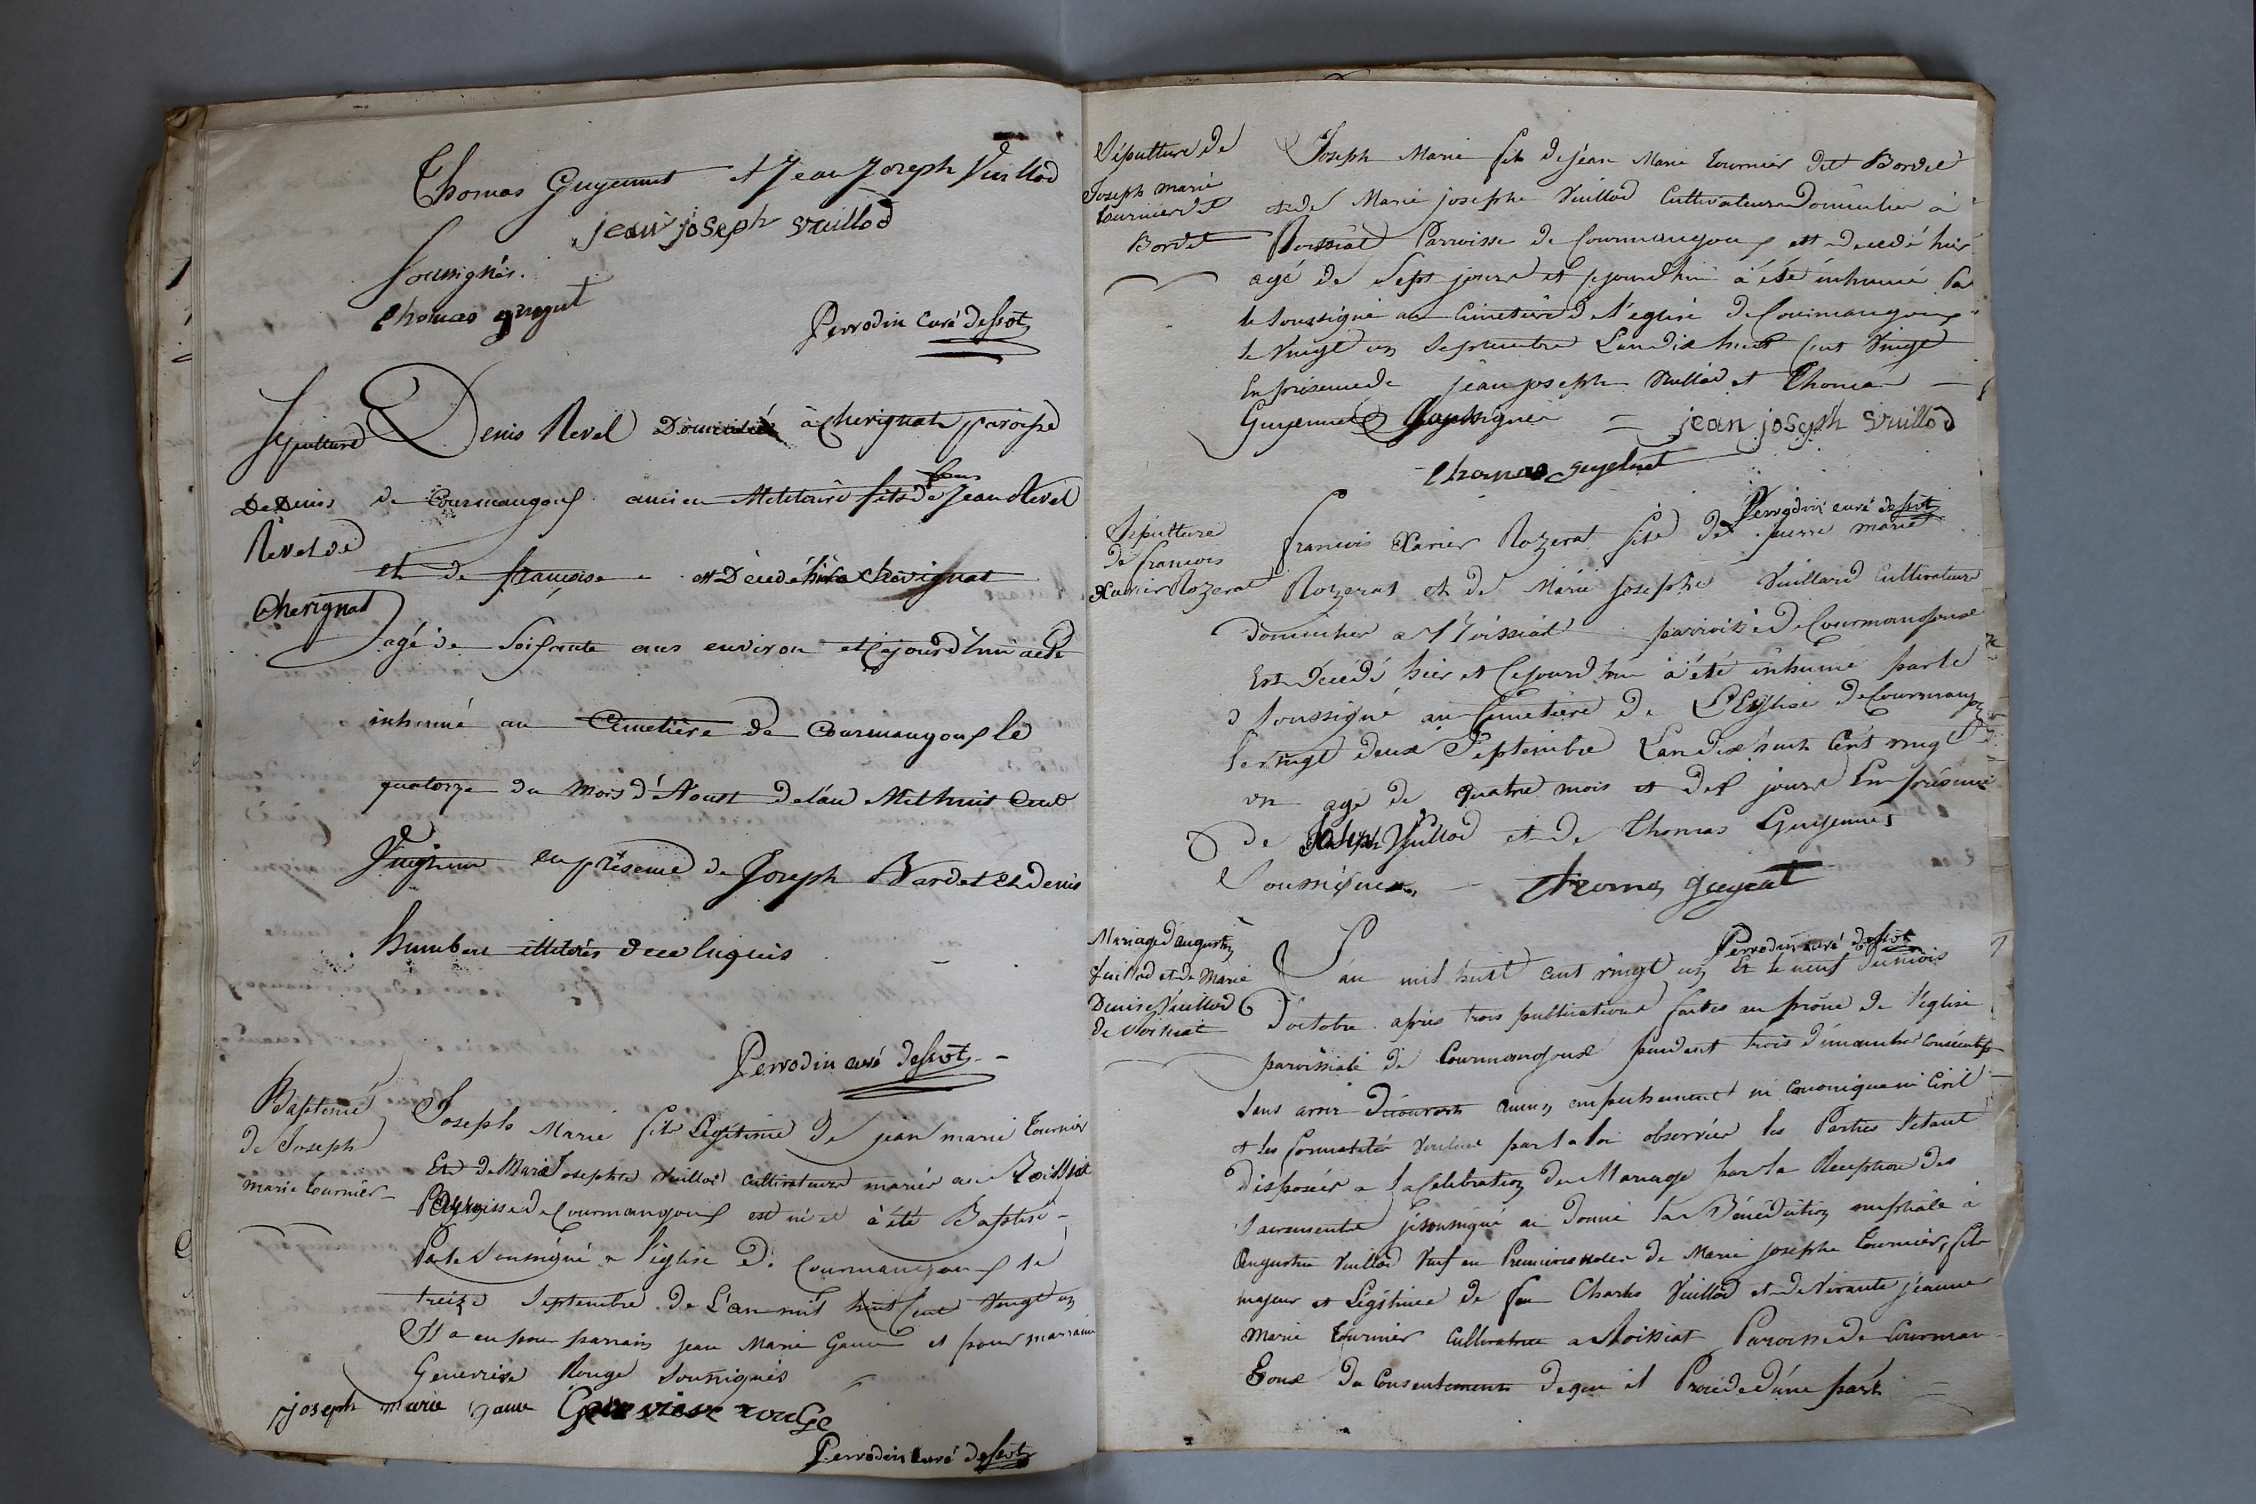 Thomas Guyennet et Jean Joseph Vuillod
jean joseph vuillod
soussignés.
thomas guyenet
Perrodin curé dessvt
Sepulture
De Denis
Revel de
Cherignat
Denis Revel Domicilié à Cherignat paroisse
de Courmangoux ancien Militaire fils de feu Jean Revel
et de françoise est Décédé hier a Chevignat
agé de Soixante ans environ et cejourd'hui a eté
inhumé au Cimetière de Courmangoux le
quatorze du Mois d'Aoust de l'an Mil huit Cent
Vingt un en présence de Joseph Bardet et denis
humbert illiterés de ce Enquis
Perrodin curé dessvt
Baptême
de Joseph
marie tournier
Joseph Marie fils Légitime de jean marie tournier
Et de Marie Josephte vuillod cultivateurs mariés au Roissiat
Parroisse de Courmangoux est né et à été Baptisé
Par le Soussigné a l'église De Courmangoux le
treize Septembre de L'an mil huit Cent Vingt un
Il a eu pour parrain jean Marie Gauu et pour marraine
Genevieve Rouge soussignés
joseph marie gauu Genevieve rouge
Perrodin curé dessvt
Sépulture de
Joseph marie
tournier dit
Bordet
Joseph Marie fils de jean Marie tournier dit Bordet
et de Marie josephe Vuillod Cultivateurs Domicilier à
Roissiat Parroisse de Courmangoux est decedé hier
agé de Sept jours et cejourdhui à été inhumé Par
le Soussigné au Cimetière de l'église de Courmangoux
le Vingt un Septembre L'an dix huit Cent Vingt
En présence de jean joseph Vuillod et Thomas
Guyennet Soussignés = jean joseph vuillod
thomas guyenet
Perrodin curé dessvt
Sépulture
de francois
Xavier Rozerat
francois Xavier Rozerat fils de pierre marie
Rozerat et de Marie josephe Vuillard Cultivateurs
domicilier a Roissiat parroisse de Courmangoux
Est Décédé hier et Cejourd'hui a été inhumé par le
Soussigné au Cimetière de L'Eglise de Courmang
le vingt deux Septembre L'an dix huit Cent vingt
un agé de quatre mois et dix jours En présence
de Joseph Vuillod et de Thomas Guyennet
Soussignés thomas guyeat
Perrodin curé dessvt
Mariage d'augustin
Vuillod et de Marie
Denise Vuillod
de roissiat
L'an mil huit cent vingt un Et le neuf du mois
D'octobre après trois publications faites au prône de l'église
paroissiale de Courmangoux pendant trois dimanches consécutifs
Sans avoir découvert aucun empechement ni canonique ni Civil
et les formalités voulues par la loi observées les Parties s'etant
disposées a la Célébration du Mariage par la Réception des
Sacrements jesoussigné ai donné la Bénédiction nuptiale à
Augustin Vuillod Veuf en Premieres noces de Marie josephe tournier, fils
majeur et Légitime de feu Charles Vuillod et de Vivante jeanne
Marie tournier Cultivatrice a Roissiat Paroisse de Courman
Goux du Consentement de qui il Procede d'une part